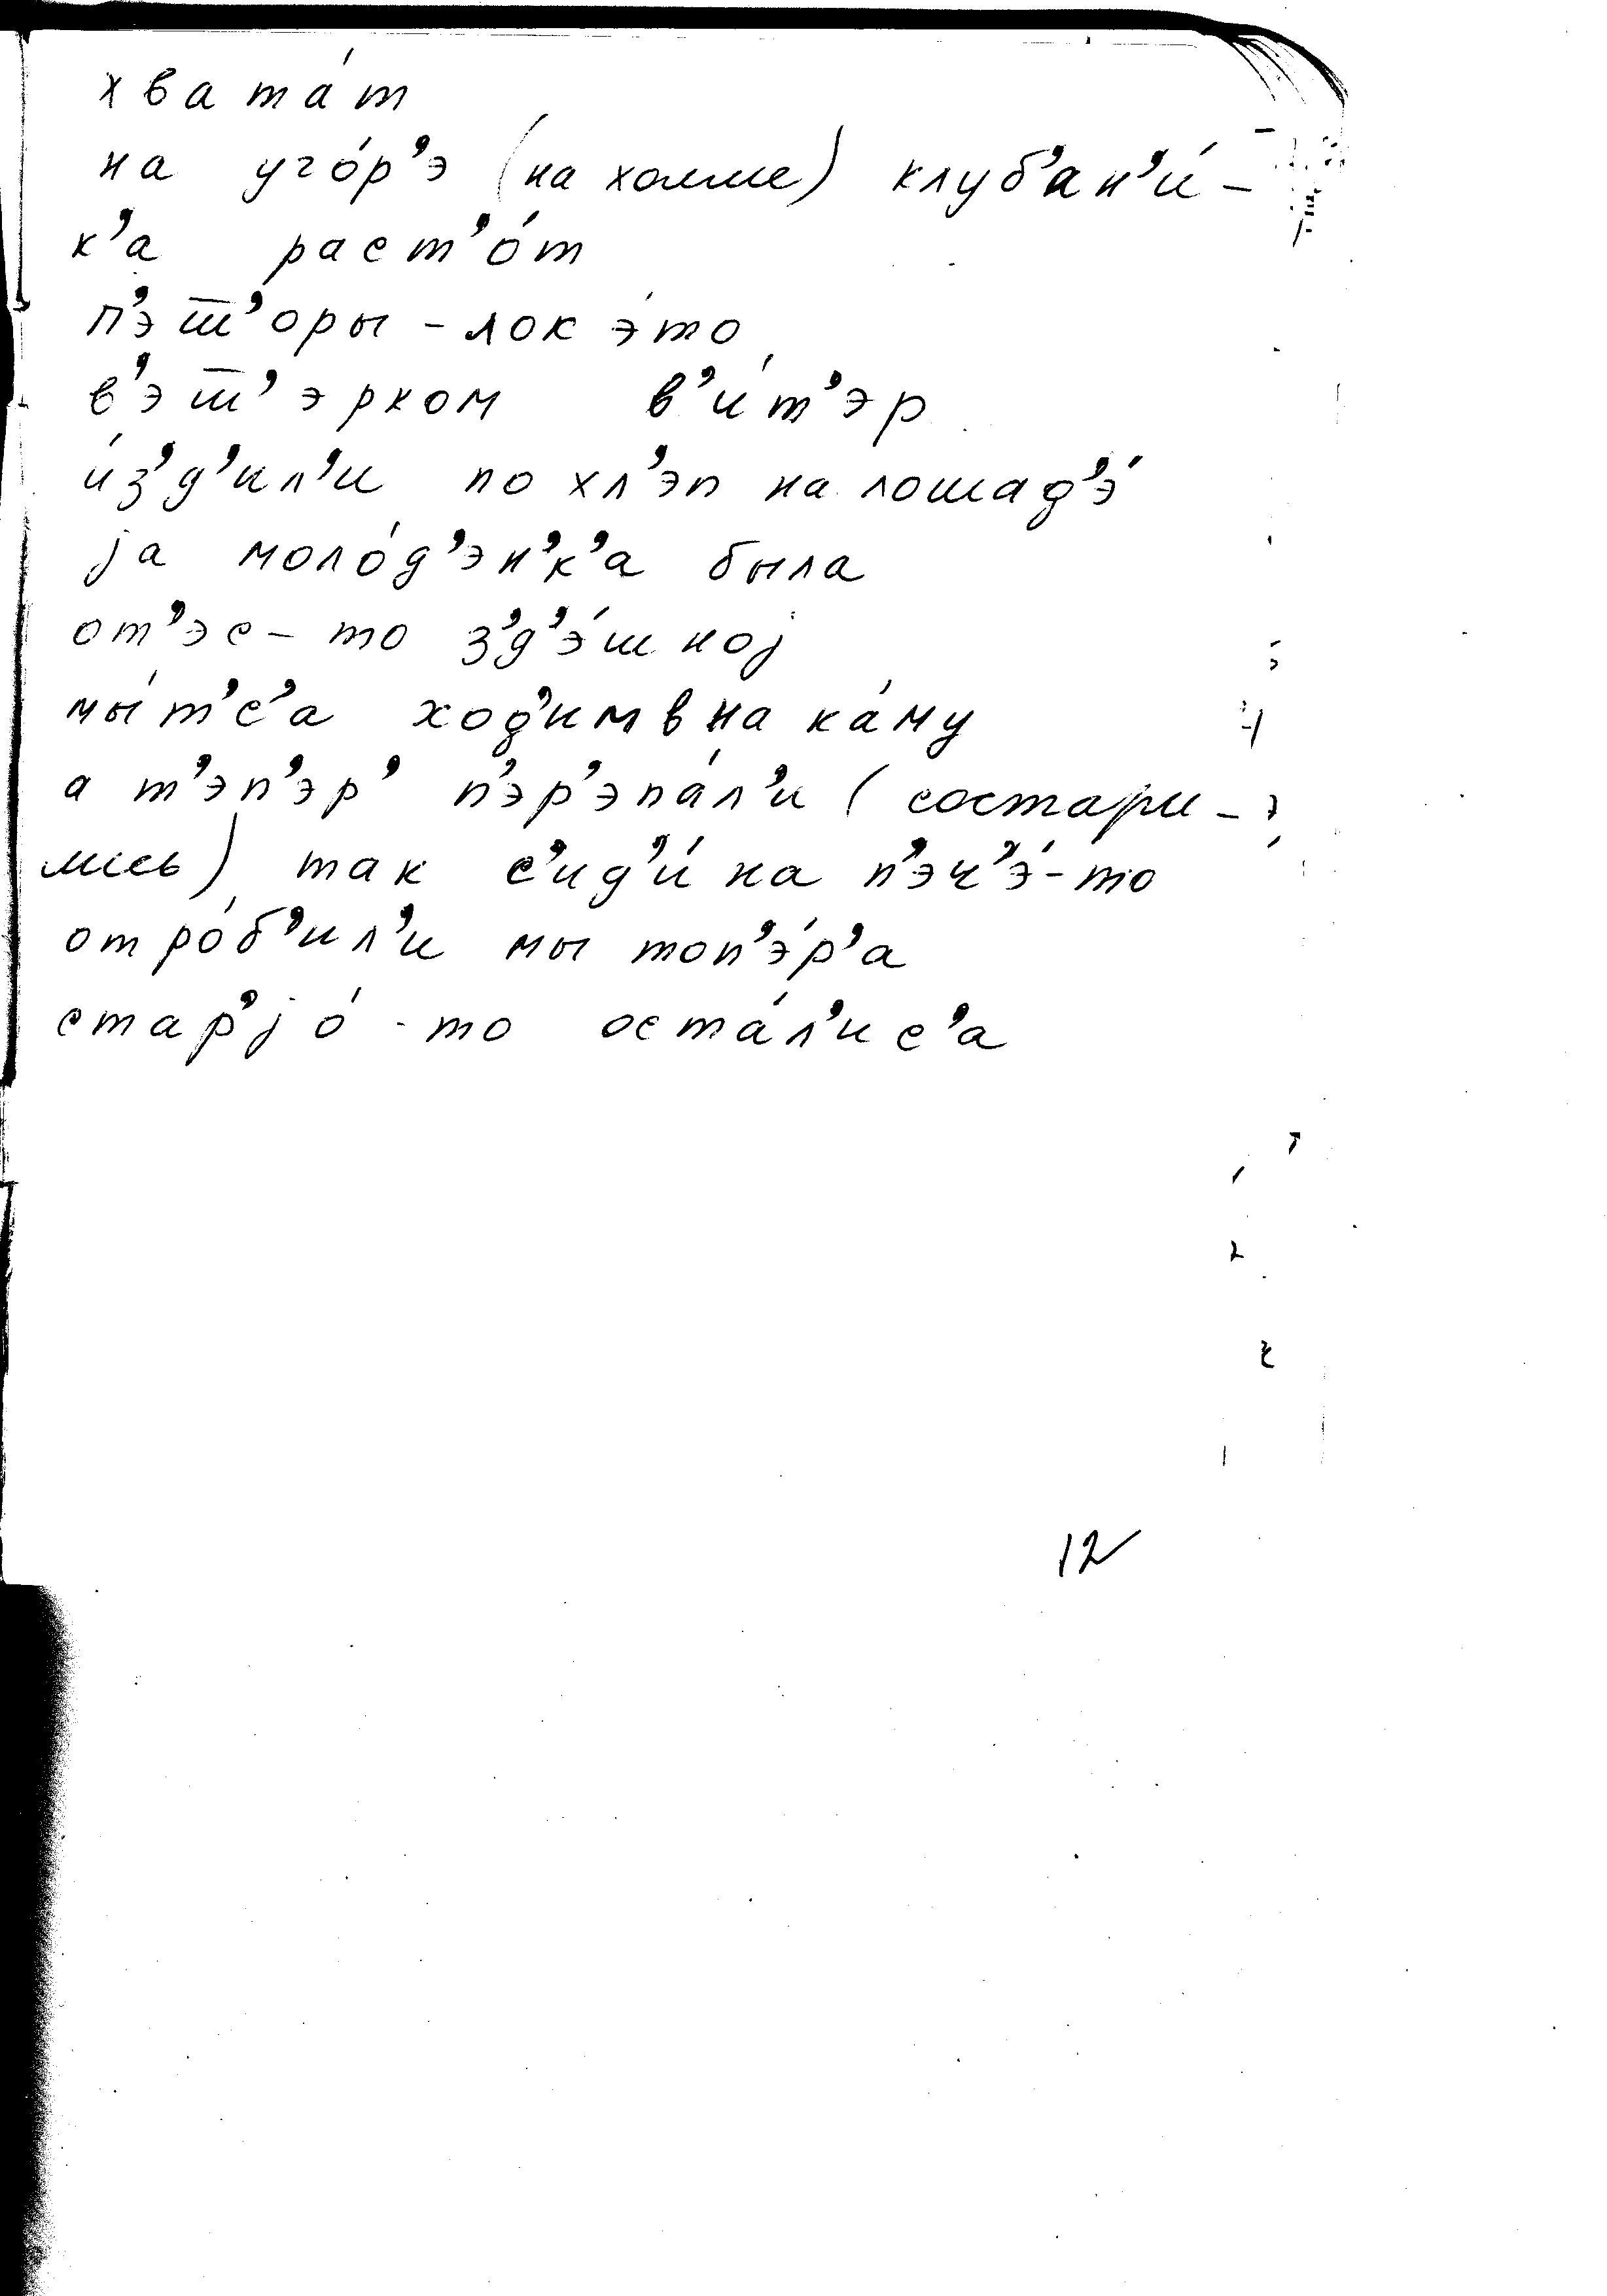 хвата́т
на уго́р’э (на холме) клуб’ан’и́-
к’а раст’о́т
п’эш̅’оры - лок э́то
в’эш̅’эрком в’и́т’эр
и́з’д’ил’и по хл’эп на лошад’э́
jа моло́д’эн’к’а была
от’эс-то з’д’э́шноj
мы́т’с’а ход’имвна ка́му
а т’эп’эр’ п’эр’эпа́л’и (состари-
лись) так с’ид’и́ на п’эч’э́-то
отро́б’ил’и мы топ’э́р’а
стар’jо́-то оста́л’ис’а
12